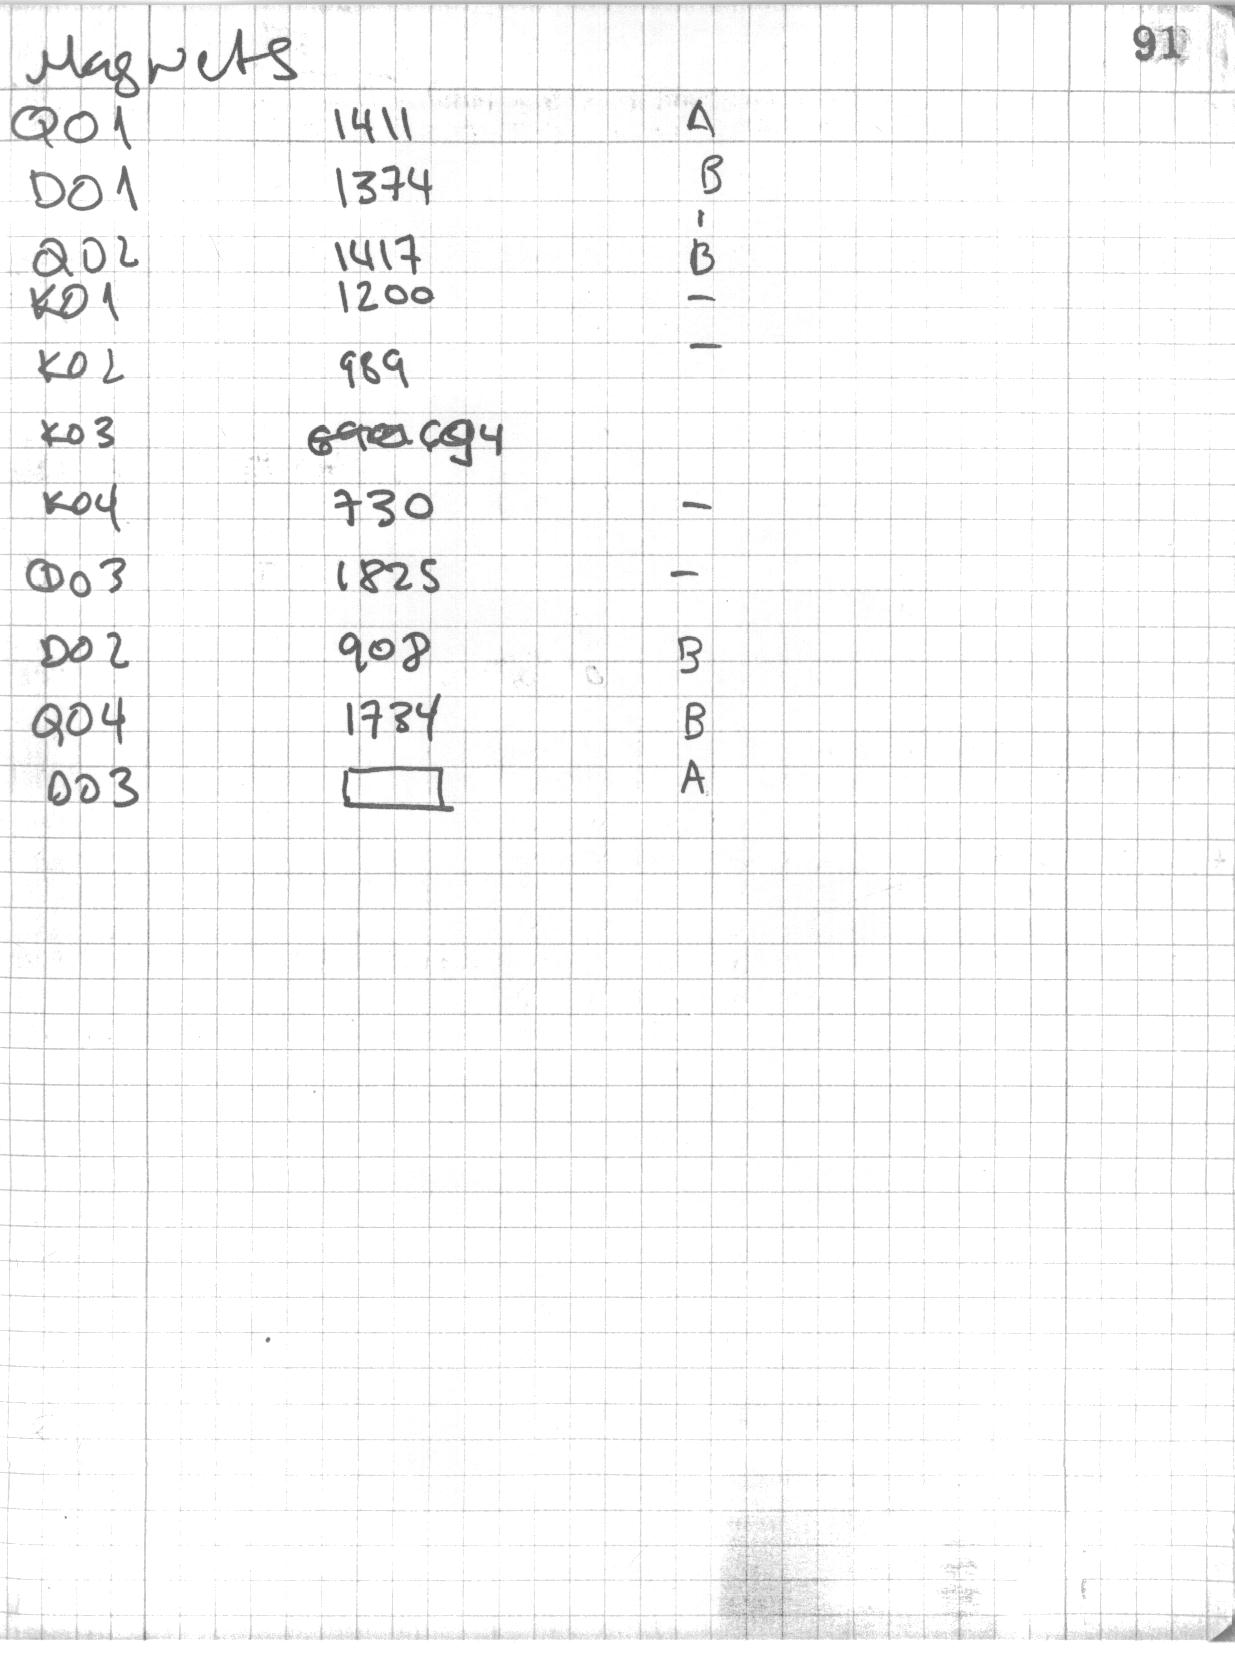 91
Magnets
Q01 1411 A
D01 1374 B
Q02 1417 B
K01 1200 -
K02 989 -
K03
K04 730 -
Q03 1825 -
D02 908 B
Q04 1734 B
D03 A